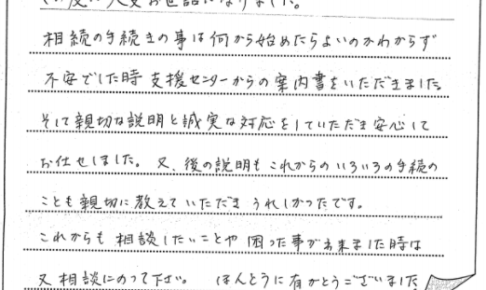 この度は大変お世話になりました。
相続の手続きの事は何から始めたらよいのかわからず
不安でした時支援センターからの案内書をいただきました。
そして親切な説明と誠実な対応をしていただき安心して
お任せしました。又、後の説明もこれからのいろいろの手続の
ことも親切に教えていただき うれしかったです。
これからも相談したいことや困った事が出来ました時は
又相談にのって下さい。 ほんとうに有がとうございました